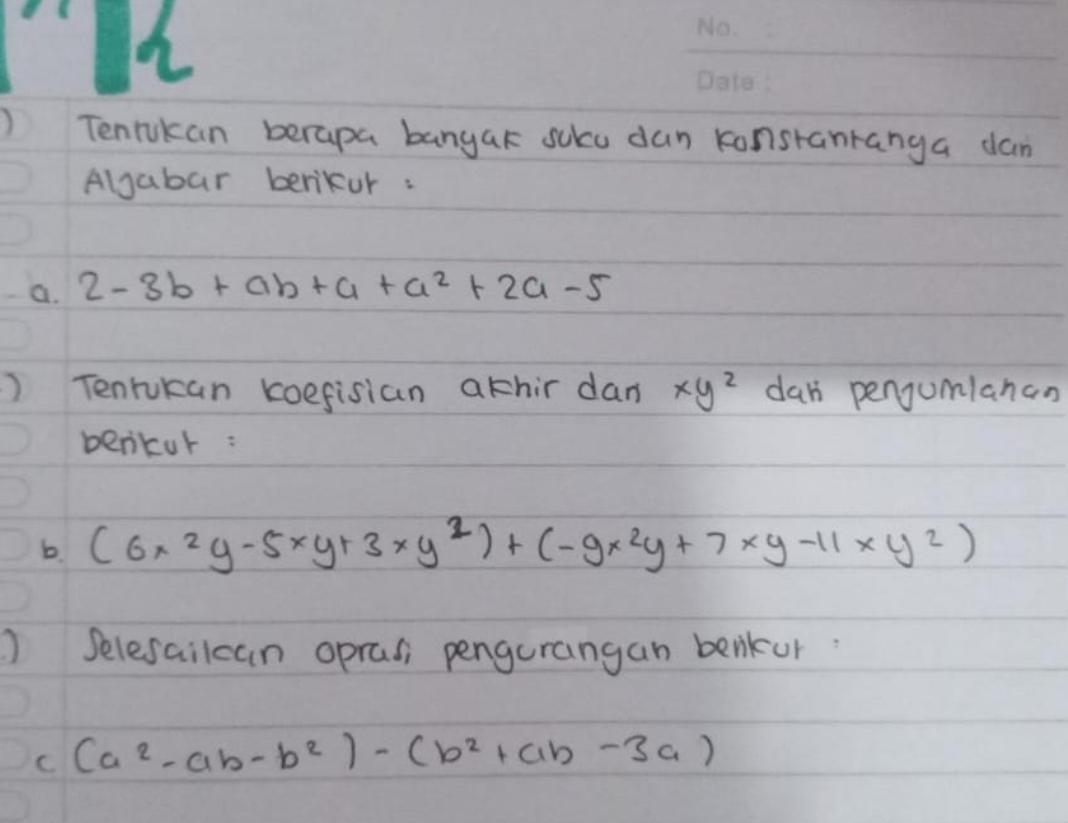 No. :
Date :
) Tentukan berapa banyak suku dan konstantanya dari
Aljabar berikut :
a. 2 - 3b + ab + a + a² + 2a - 5
) Tentukan koefisian akhir dari xy² dari penjumlahan
berikut :
b. (6x²y - 5xy + 3xy²) + (-9x²y + 7xy - 11xy²)
) Selesaikan oprasi pengurangan berikut :
c (a² - ab - b²) - (b² + ab - 3a)